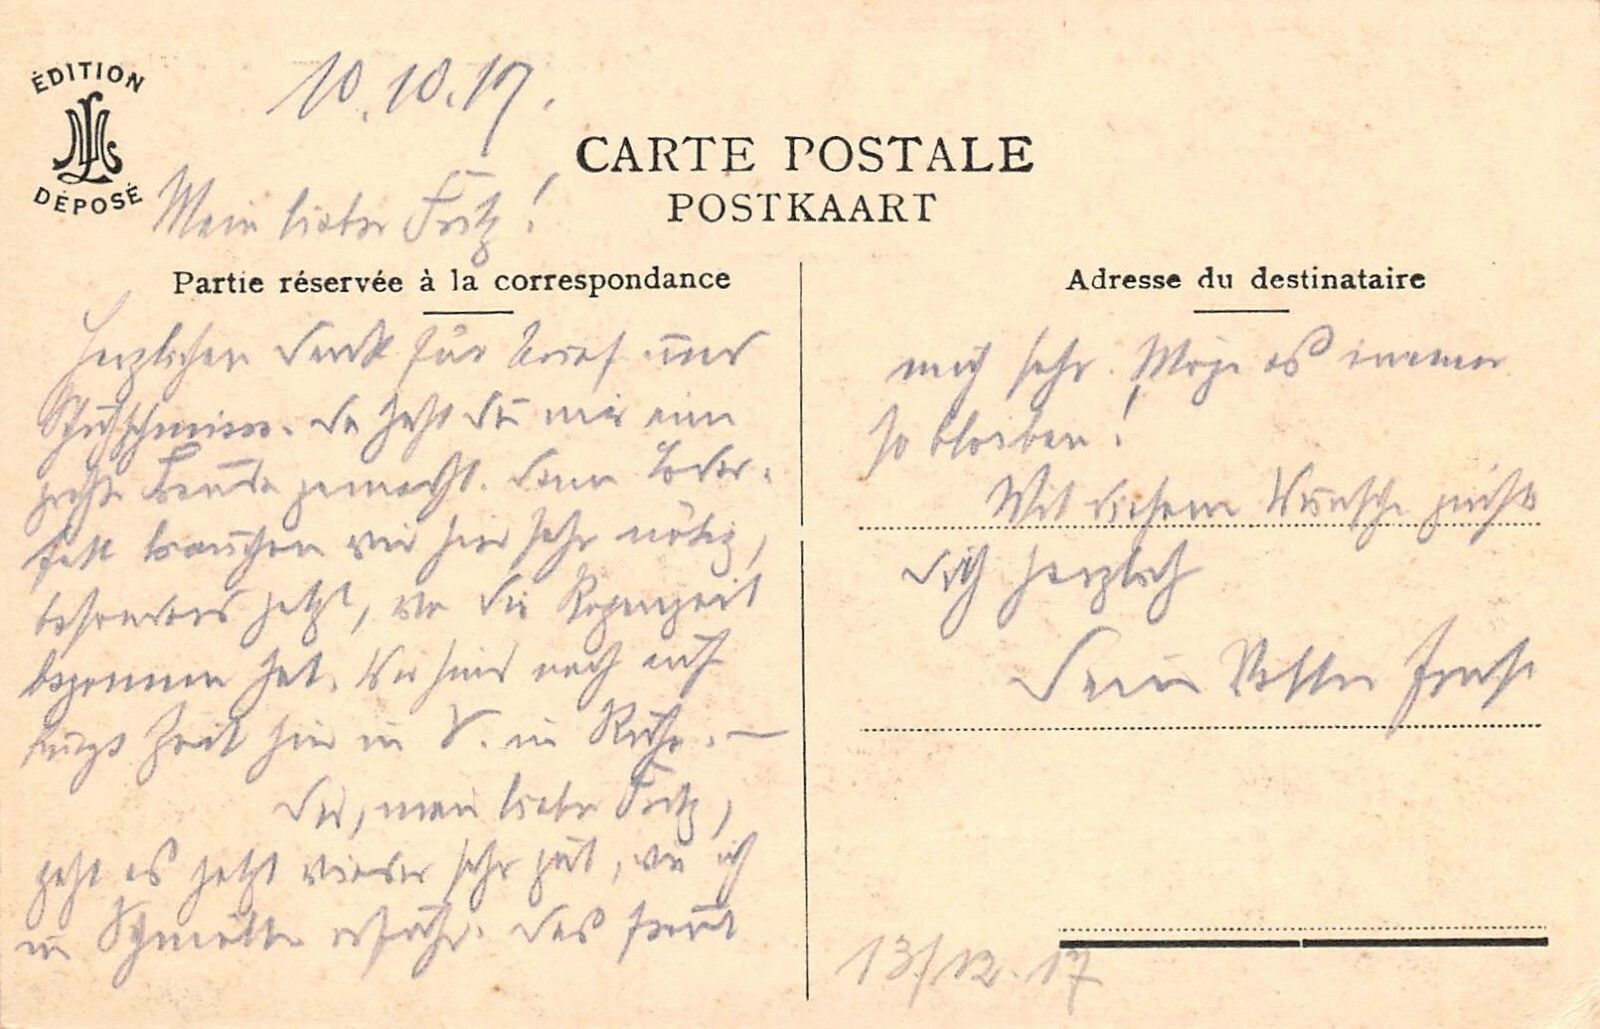 ÉDITION
DÉPOSÉ
10.10.17.
CARTE POSTALE
POSTKAART
Mein lieber Fritz!
Partie réservée à la correspondance
Herzlichen Dank für Brief und
Da hast Du mir eine
große Freude gemacht. Denn Leder-
fett brauchen wir hier sehr nötig,
besonders jetzt, wo die Regenzeit
begonnen hat. Wir sind noch auf
Zeit hier in V. in Ruhe. —
Dir, mein lieber Fritz,
geht es jetzt wieder sehr gut, wie ich
in erfuhr. Das freut
Adresse du destinataire
mich sehr. Möge es immer
so bleiben!
Mit diesem Wunsche grüßt
Dich herzlich
Dein Vetter Ernst
13/12.17